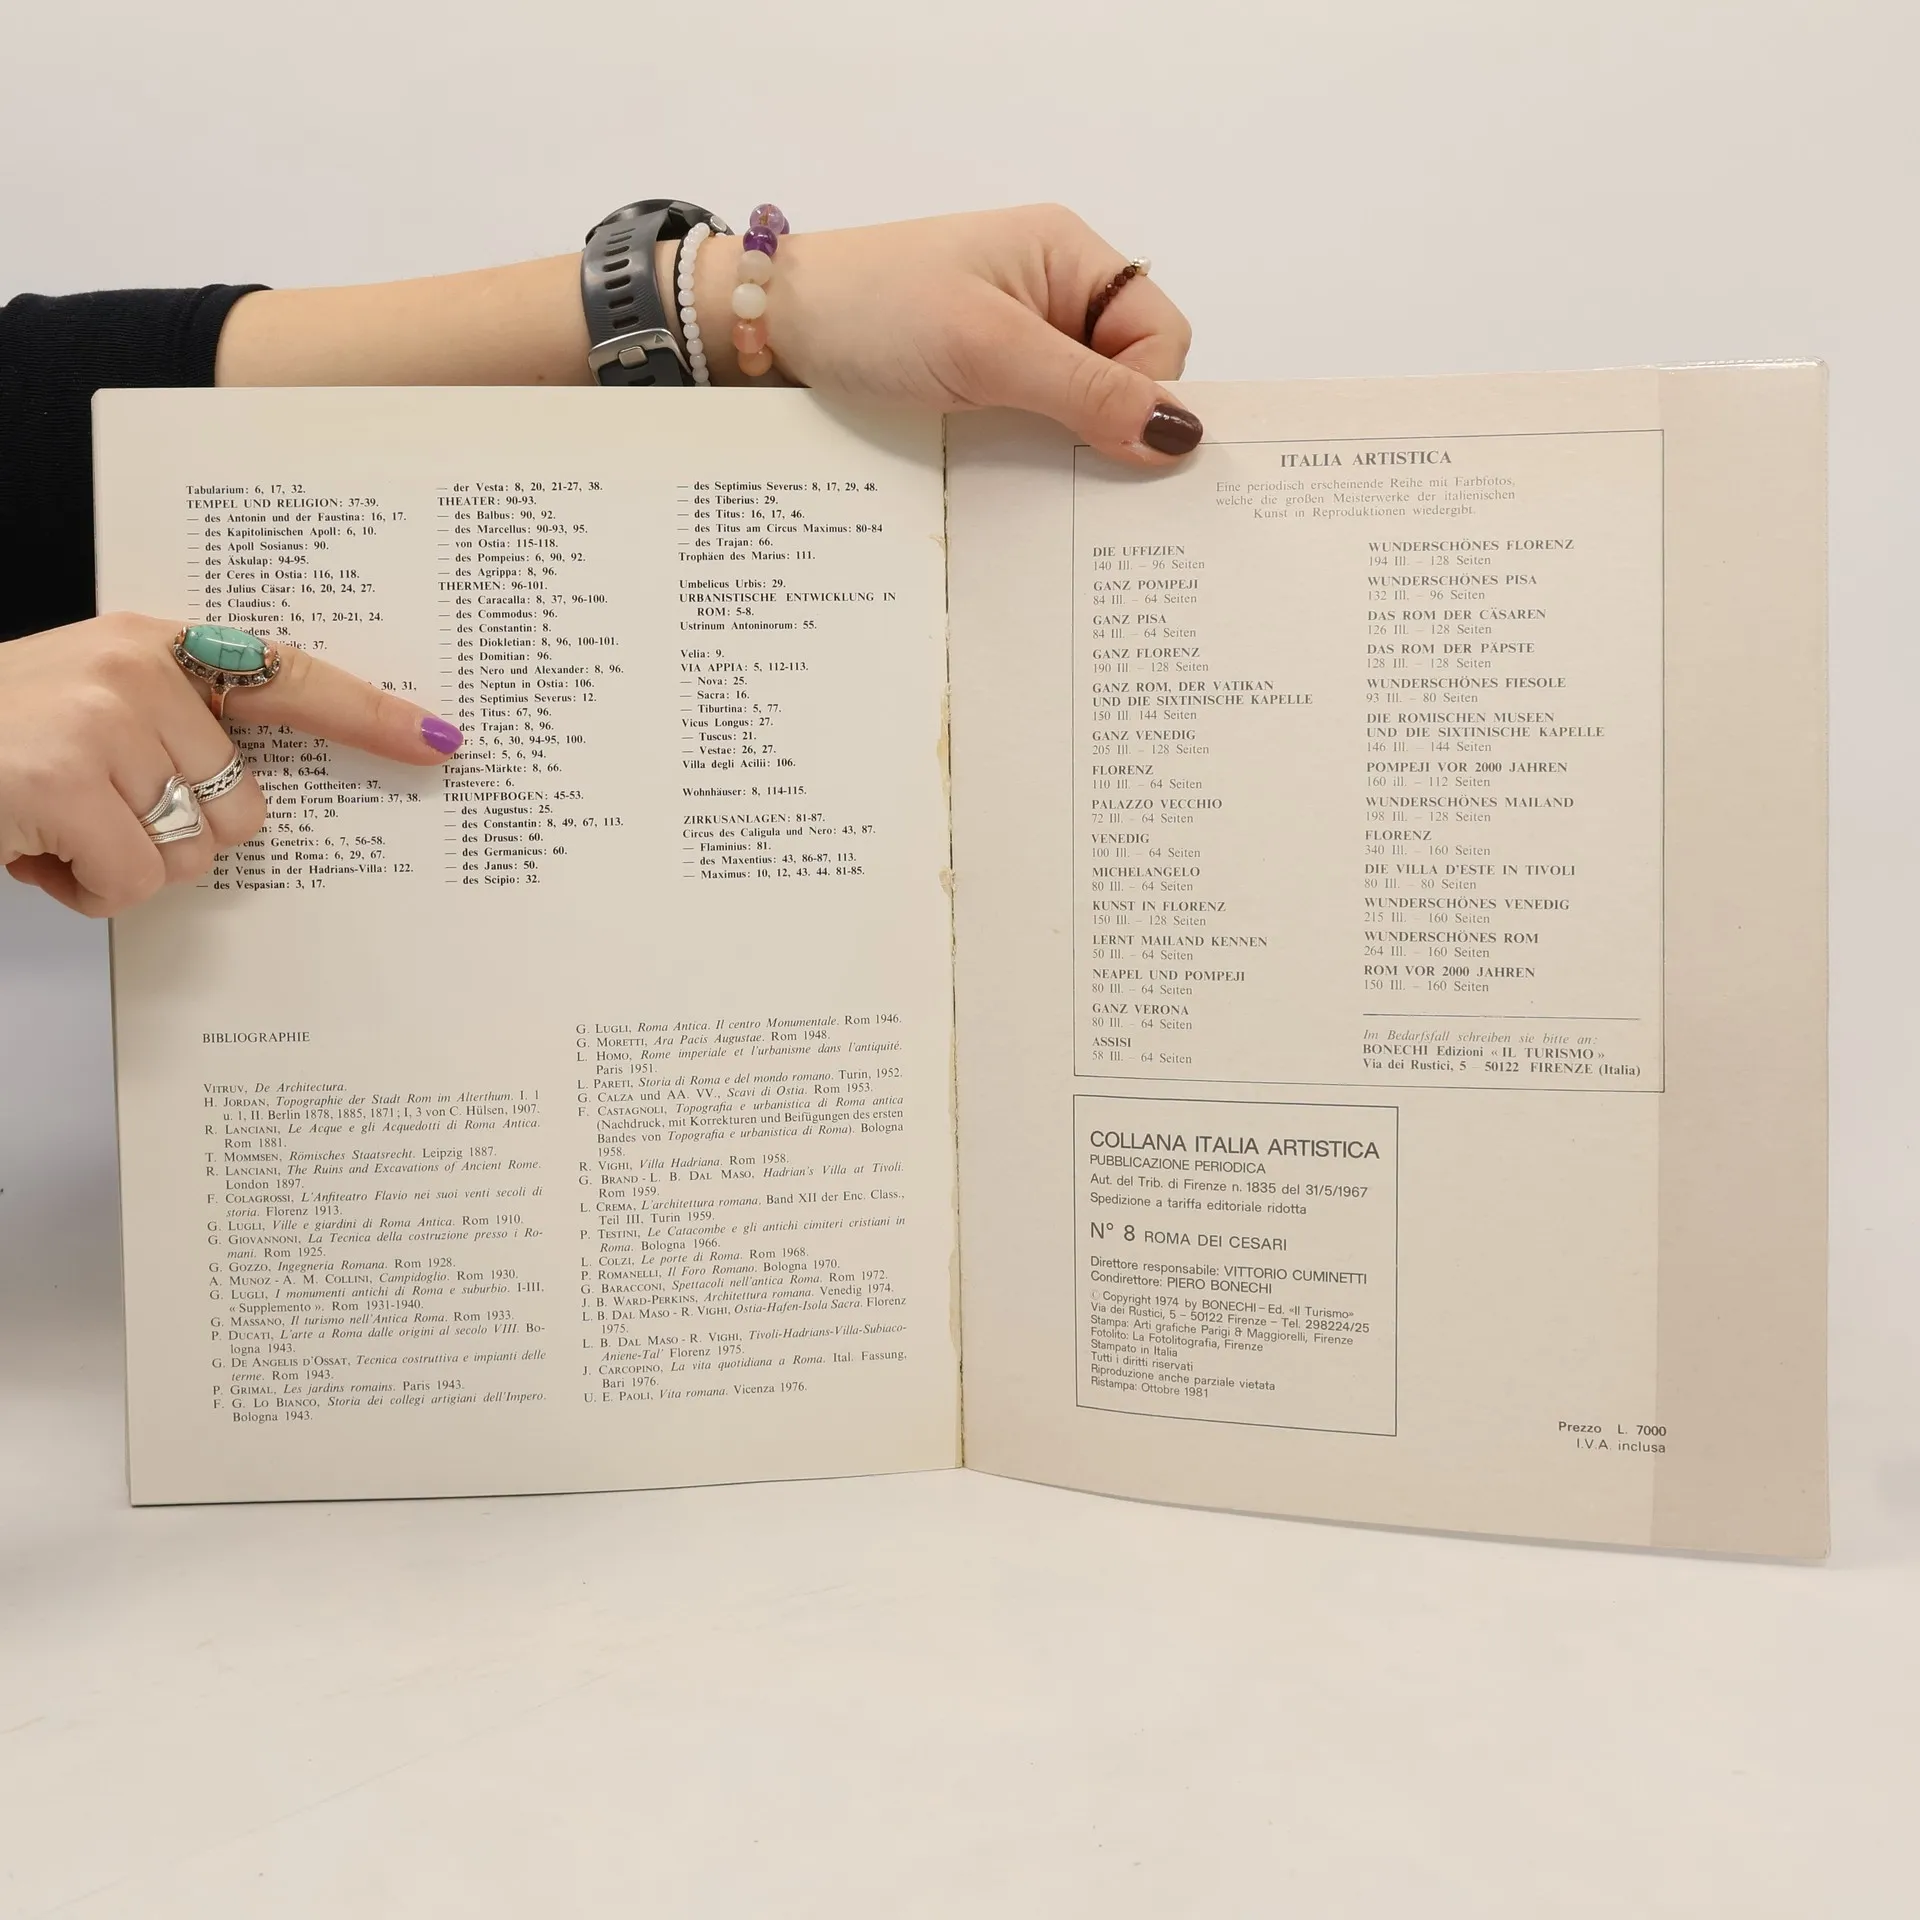 Tabularium: 6, 17, 32.
TEMPEL UND RELIGION: 37-39.
— des Antonin und der Faustina: 16, 17.
— des Kapitolinischen Apoll: 6, 10.
— des Apoll Sosianus: 90.
— des Äskulap: 94-95.
— der Ceres in Ostia: 116, 118.
— des Julius Cäsar: 16, 20, 24, 27.
— des Claudius: 6.
— der Dioskuren: 16, 17, 20-21, 24.
38.
37.
30, 31,
Isis: 37, 43.
Magna Mater: 37.
Ultor: 60-61.
8, 63-64.
Gottheiten: 37.
auf dem Forum Boarium: 37, 38.
17, 20.
55, 66.
Venus Genetrix: 6, 7, 56-58.
der Venus und Roma: 6, 29, 67.
der Venus in der Hadrians-Villa: 122.
— des Vespasian: 3, 17.
— der Vesta: 8, 20, 21-27, 38.
THEATER: 90-93.
— des Balbus: 90, 92.
— des Marcellus: 90-93, 95.
— von Ostia: 115-118.
— des Pompeius: 6, 90, 92.
— des Agrippa: 8, 96.
THERMEN: 96-101.
— des Caracalla: 8, 37, 96-100.
— des Commodus: 96.
— des Constantin: 8.
— des Diokletian: 8, 96, 100-101.
— des Domitian: 96.
— des Nero und Alexander: 8, 96.
— des Neptun in Ostia: 106.
— des Septimius Severus: 12.
— des Titus: 67, 96.
des Trajan: 8, 96.
5, 6, 30, 94-95, 100.
5, 6, 94.
Trajans-Märkte: 8, 66.
Trastevere: 6.
TRIUMPFBOGEN: 45-53.
— des Augustus: 25.
— des Constantin: 8, 49, 67, 113.
— des Drusus: 60.
— des Germanicus: 60.
— des Janus: 50.
— des Scipio: 32.
— des Septimius Severus: 8, 17, 29, 48.
— des Tiberius: 29.
— des Titus: 16, 17, 46.
— des Titus am Circus Maximus: 80-84
— des Trajan: 66.
Trophäen des Marius: 111.
Umbelicus Urbis: 29.
URBANISTISCHE ENTWICKLUNG IN
ROM: 5-8.
Ustrinum Antoninorum: 55.
Velia: 9.
VIA APPIA: 5, 112-113.
— Nova: 25.
— Sacra: 16.
— Tiburtina: 5, 77.
Vicus Longus: 27.
— Tuscus: 21.
— Vestae: 26, 27.
Villa degli Acilii: 106.
Wohnhäuser: 8, 114-115.
ZIRKUSANLAGEN: 81-87.
Circus des Caligula und Nero: 43, 87.
— Flaminius: 81.
— des Maxentius: 43, 86-87, 113.
— Maximus: 10, 12, 43. 44. 81-85.
BIBLIOGRAPHIE
VITRUV, De Architectura.
H. JORDAN, Topographie der Stadt Rom im Alterthum. I. 1
u. 1, II. Berlin 1878, 1885, 1871; I, 3 von C. Hülsen, 1907.
R. LANCIANI, Le Acque e gli Acquedotti di Roma Antica.
Rom 1881.
T. MOMMSEN, Römisches Staatsrecht. Leipzig 1887.
R. LANCIANI, The Ruins and Excavations of Ancient Rome.
London 1897.
F. COLAGROSSI, L'Anfiteatro Flavio nei suoi venti secoli di
storia. Florenz 1913.
G. LUGLI, Ville e giardini di Roma Antica. Rom 1910.
G. GIOVANNONI, La Tecnica della costruzione presso i Ro-
mani. Rom 1925.
G. GOZZO, Ingegneria Romana. Rom 1928.
A. MUNOZ - A. M. COLLINI, Campidoglio. Rom 1930.
G. LUGLI, I monumenti antichi di Roma e suburbio. I-III,
« Supplemento ». Rom 1931-1940.
G. MASSANO, Il turismo nell'Antica Roma. Rom 1933.
P. DUCATI, L'arte a Roma dalle origini al secolo VIII. Bo-
logna 1943.
G. DE ANGELIS D'OSSAT, Tecnica costruttiva e impianti delle
terme. Rom 1943.
P. GRIMAL, Les jardins romains. Paris 1943.
F. G. LO BIANCO, Storia dei collegi artigiani dell'Impero.
Bologna 1943.
G. LUGLI, Roma Antica. Il centro Monumentale. Rom 1946.
G. MORETTI, Ara Pacis Augustae. Rom 1948.
L. HOMO, Rome imperiale et l'urbanisme dans l'antiquité.
Paris 1951.
L. PARETI, Storia di Roma e del mondo romano. Turin, 1952.
G. CALZA und AA. VV., Scavi di Ostia. Rom 1953.
F. CASTAGNOLI, Topografia e urbanistica di Roma antica
(Nachdruck, mit Korrekturen und Beifügungen des ersten
Bandes von Topografia e urbanistica di Roma). Bologna
1958.
R. VIGHI, Villa Hadriana. Rom 1958.
G. BRAND - L. B. DAL MASO, Hadrian's Villa at Tivoli.
Rom 1959.
L. CREMA, L'architettura romana, Band XII der Enc. Class.,
Teil III, Turin 1959.
P. TESTINI, Le Catacombe e gli antichi cimiteri cristiani in
Roma. Bologna 1966.
L. COLZI, Le porte di Roma. Rom 1968.
P. ROMANELLI, Il Foro Romano. Bologna 1970.
G. BARACCONI, Spettacoli nell'antica Roma. Rom 1972.
J. B. WARD-PERKINS, Architettura romana. Venedig 1974.
L. B. DAL MASO - R. VIGHI, Ostia-Hafen-Isola Sacra. Florenz
1975.
L. B. DAL MASO - R. VIGHI, Tivoli-Hadrians-Villa-Subiaco-
Aniene-Tal' Florenz 1975.
J. CARCOPINO, La vita quotidiana a Roma. Ital. Fassung,
Bari 1976.
U. E. PAOLI, Vita romana. Vicenza 1976.
ITALIA ARTISTICA
Eine periodisch erscheinende Reihe mit Farbfotos,
welche die großen Meisterwerke der italienischen
Kunst in Reproduktionen wiedergibt.
DIE UFFIZIEN
140 Ill. – 96 Seiten
GANZ POMPEJI
84 Ill. – 64 Seiten
GANZ PISA
84 Ill. – 64 Seiten
GANZ FLORENZ
190 Ill. – 128 Seiten
GANZ ROM, DER VATIKAN
UND DIE SIXTINISCHE KAPELLE
150 Ill. 144 Seiten
GANZ VENEDIG
205 Ill. – 128 Seiten
FLORENZ
110 Ill. – 64 Seiten
PALAZZO VECCHIO
72 Ill. – 64 Seiten
VENEDIG
100 Ill. – 64 Seiten
MICHELANGELO
80 Ill. – 64 Seiten
KUNST IN FLORENZ
150 Ill. – 128 Seiten
LERNT MAILAND KENNEN
50 Ill. – 64 Seiten
NEAPEL UND POMPEJI
80 Ill. – 64 Seiten
GANZ VERONA
80 Ill. – 64 Seiten
ASSISI
58 Ill. – 64 Seiten
WUNDERSCHÖNES FLORENZ
194 Ill. – 128 Seiten
WUNDERSCHÖNES PISA
132 Ill. – 96 Seiten
DAS ROM DER CÄSAREN
126 Ill. – 128 Seiten
DAS ROM DER PÄPSTE
128 Ill. – 128 Seiten
WUNDERSCHÖNES FIESOLE
93 Ill. – 80 Seiten
DIE ROMISCHEN MUSEEN
UND DIE SIXTINISCHE KAPELLE
146 Ill. – 144 Seiten
POMPEJI VOR 2000 JAHREN
160 ill. – 112 Seiten
WUNDERSCHÖNES MAILAND
198 Ill. – 128 Seiten
FLORENZ
340 Ill. – 160 Seiten
DIE VILLA D'ESTE IN TIVOLI
80 Ill. – 80 Seiten
WUNDERSCHÖNES VENEDIG
215 Ill. – 160 Seiten
WUNDERSCHÖNES ROM
264 Ill. – 160 Seiten
ROM VOR 2000 JAHREN
150 Ill. – 160 Seiten
Im Bedarfsfall schreiben sie bitte an:
BONECHI Edizioni « IL TURISMO »
Via dei Rustici, 5 – 50122 FIRENZE (Italia)
COLLANA ITALIA ARTISTICA
PUBBLICAZIONE PERIODICA
Aut. del Trib. di Firenze n. 1835 del 31/5/1967
Spedizione a tariffa editoriale ridotta
N° 8 ROMA DEI CESARI
Direttore responsabile: VITTORIO CUMINETTI
Condirettore: PIERO BONECHI
© Copyright 1974 by BONECHI – Ed. «Il Turismo»
Via dei Rustici, 5 – 50122 Firenze – Tel. 298224/25
Stampa: Arti grafiche Parigi & Maggiorelli, Firenze
Fotolito: La Fotolitografia, Firenze
Stampato in Italia
Tutti i diritti riservati
Riproduzione anche parziale vietata
Ristampa: Ottobre 1981
Prezzo L. 7000
I.V.A. inclusa